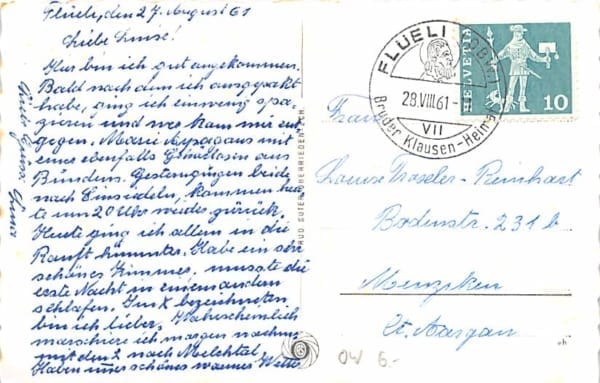 Flüeli, den 27. August 61
Liebe Luise!
Hier bin ich gut angekommen.
Bald nach dem ich ausgepackt
habe, ging ich ein wenig spa,
zieren und wer kam mir ent
gegen. Marie Aypagaus mit
eine ebenfalls aus
Bünden. Gestern gingen beide
nach Einsiedeln, kommen heu
te um 20 Uhr wieder zurück.
Heute ging ich allein in die
Ranft hinunter. Habe ein sehr
schönes Zimmer, musste die
erste Nacht in einem andern
schlafen. Im X bezeichneten
bin ich lieber. Wahrscheinlich
marschiere ich morgen nachm.
mit den 2 nach Melchtal.
Haben schönes warmes Wetter
Gruss
DRUD. SUTER, OBERRIEDEN-ZCH.
FLÜELI (OBW)
28.VIII.61-
VII
Bruder Klausen-Heimat
HELVETIA
10
Frau
Louise Troseler-Reinhart
Bodenstr. 231 b
Menziken
Kt. Aargau
04/ 6.-